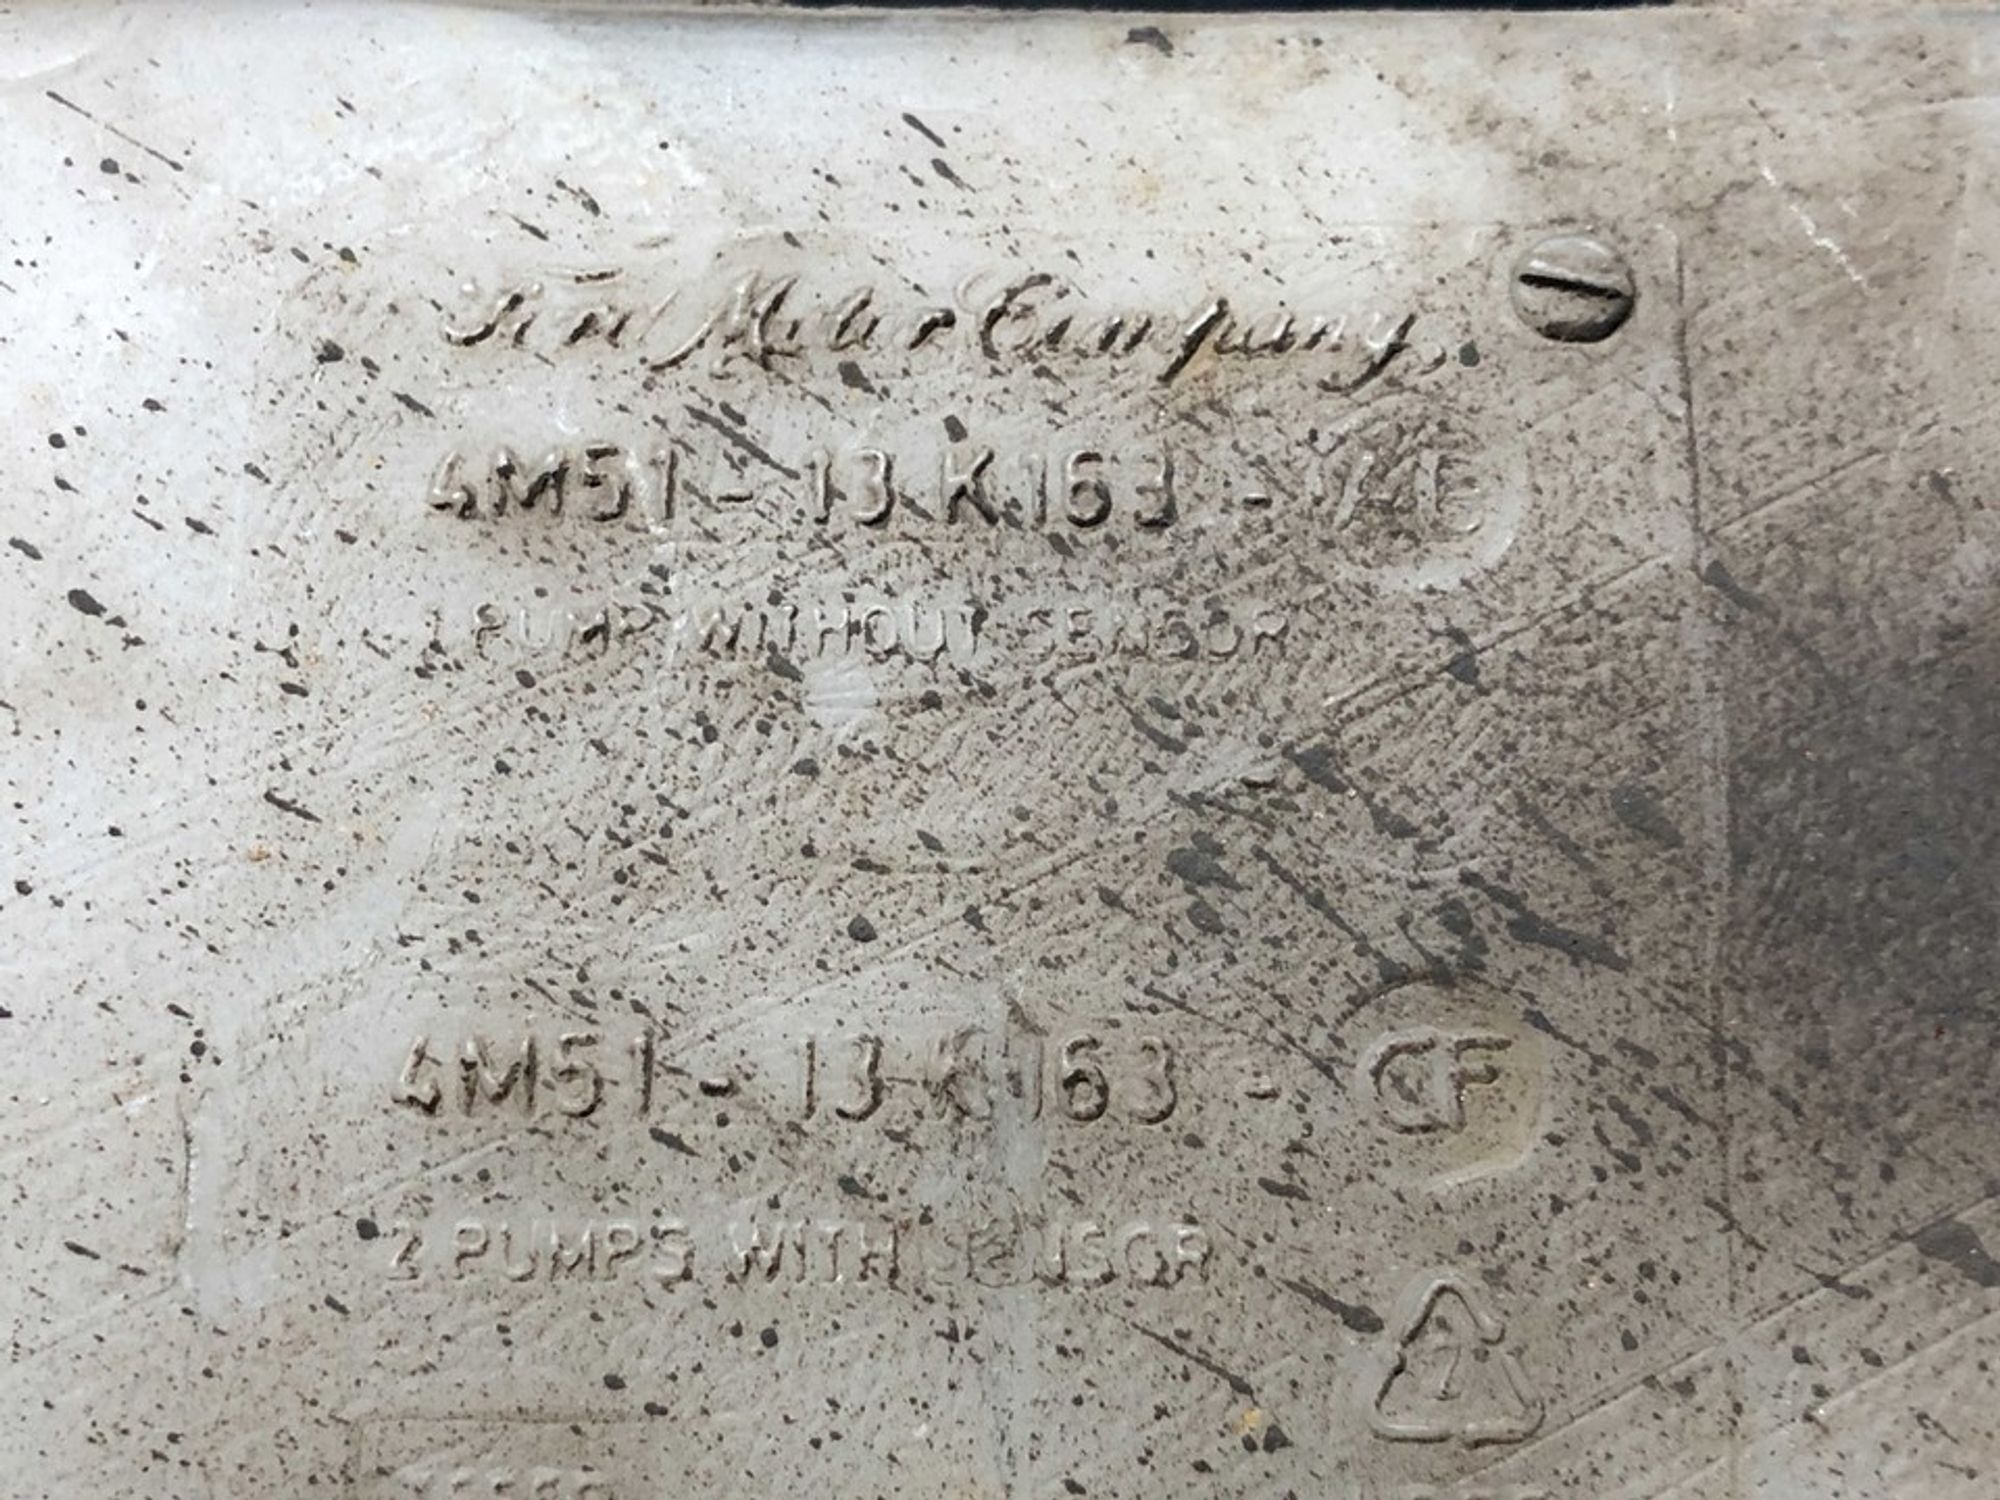 Ford Motor Company
4M51 - 13 K 163 -
1 PUMP WITHOUT SENSOR
4M51 - 13 K 163 - CF
2 PUMPS WITH SENSOR
7